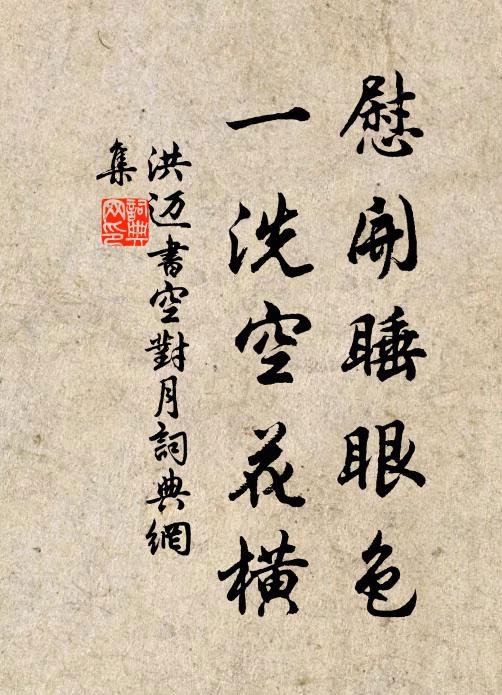 慰開睡眼色
一洗空花橫
洪迈書空對月詞典網
集
詞典網印